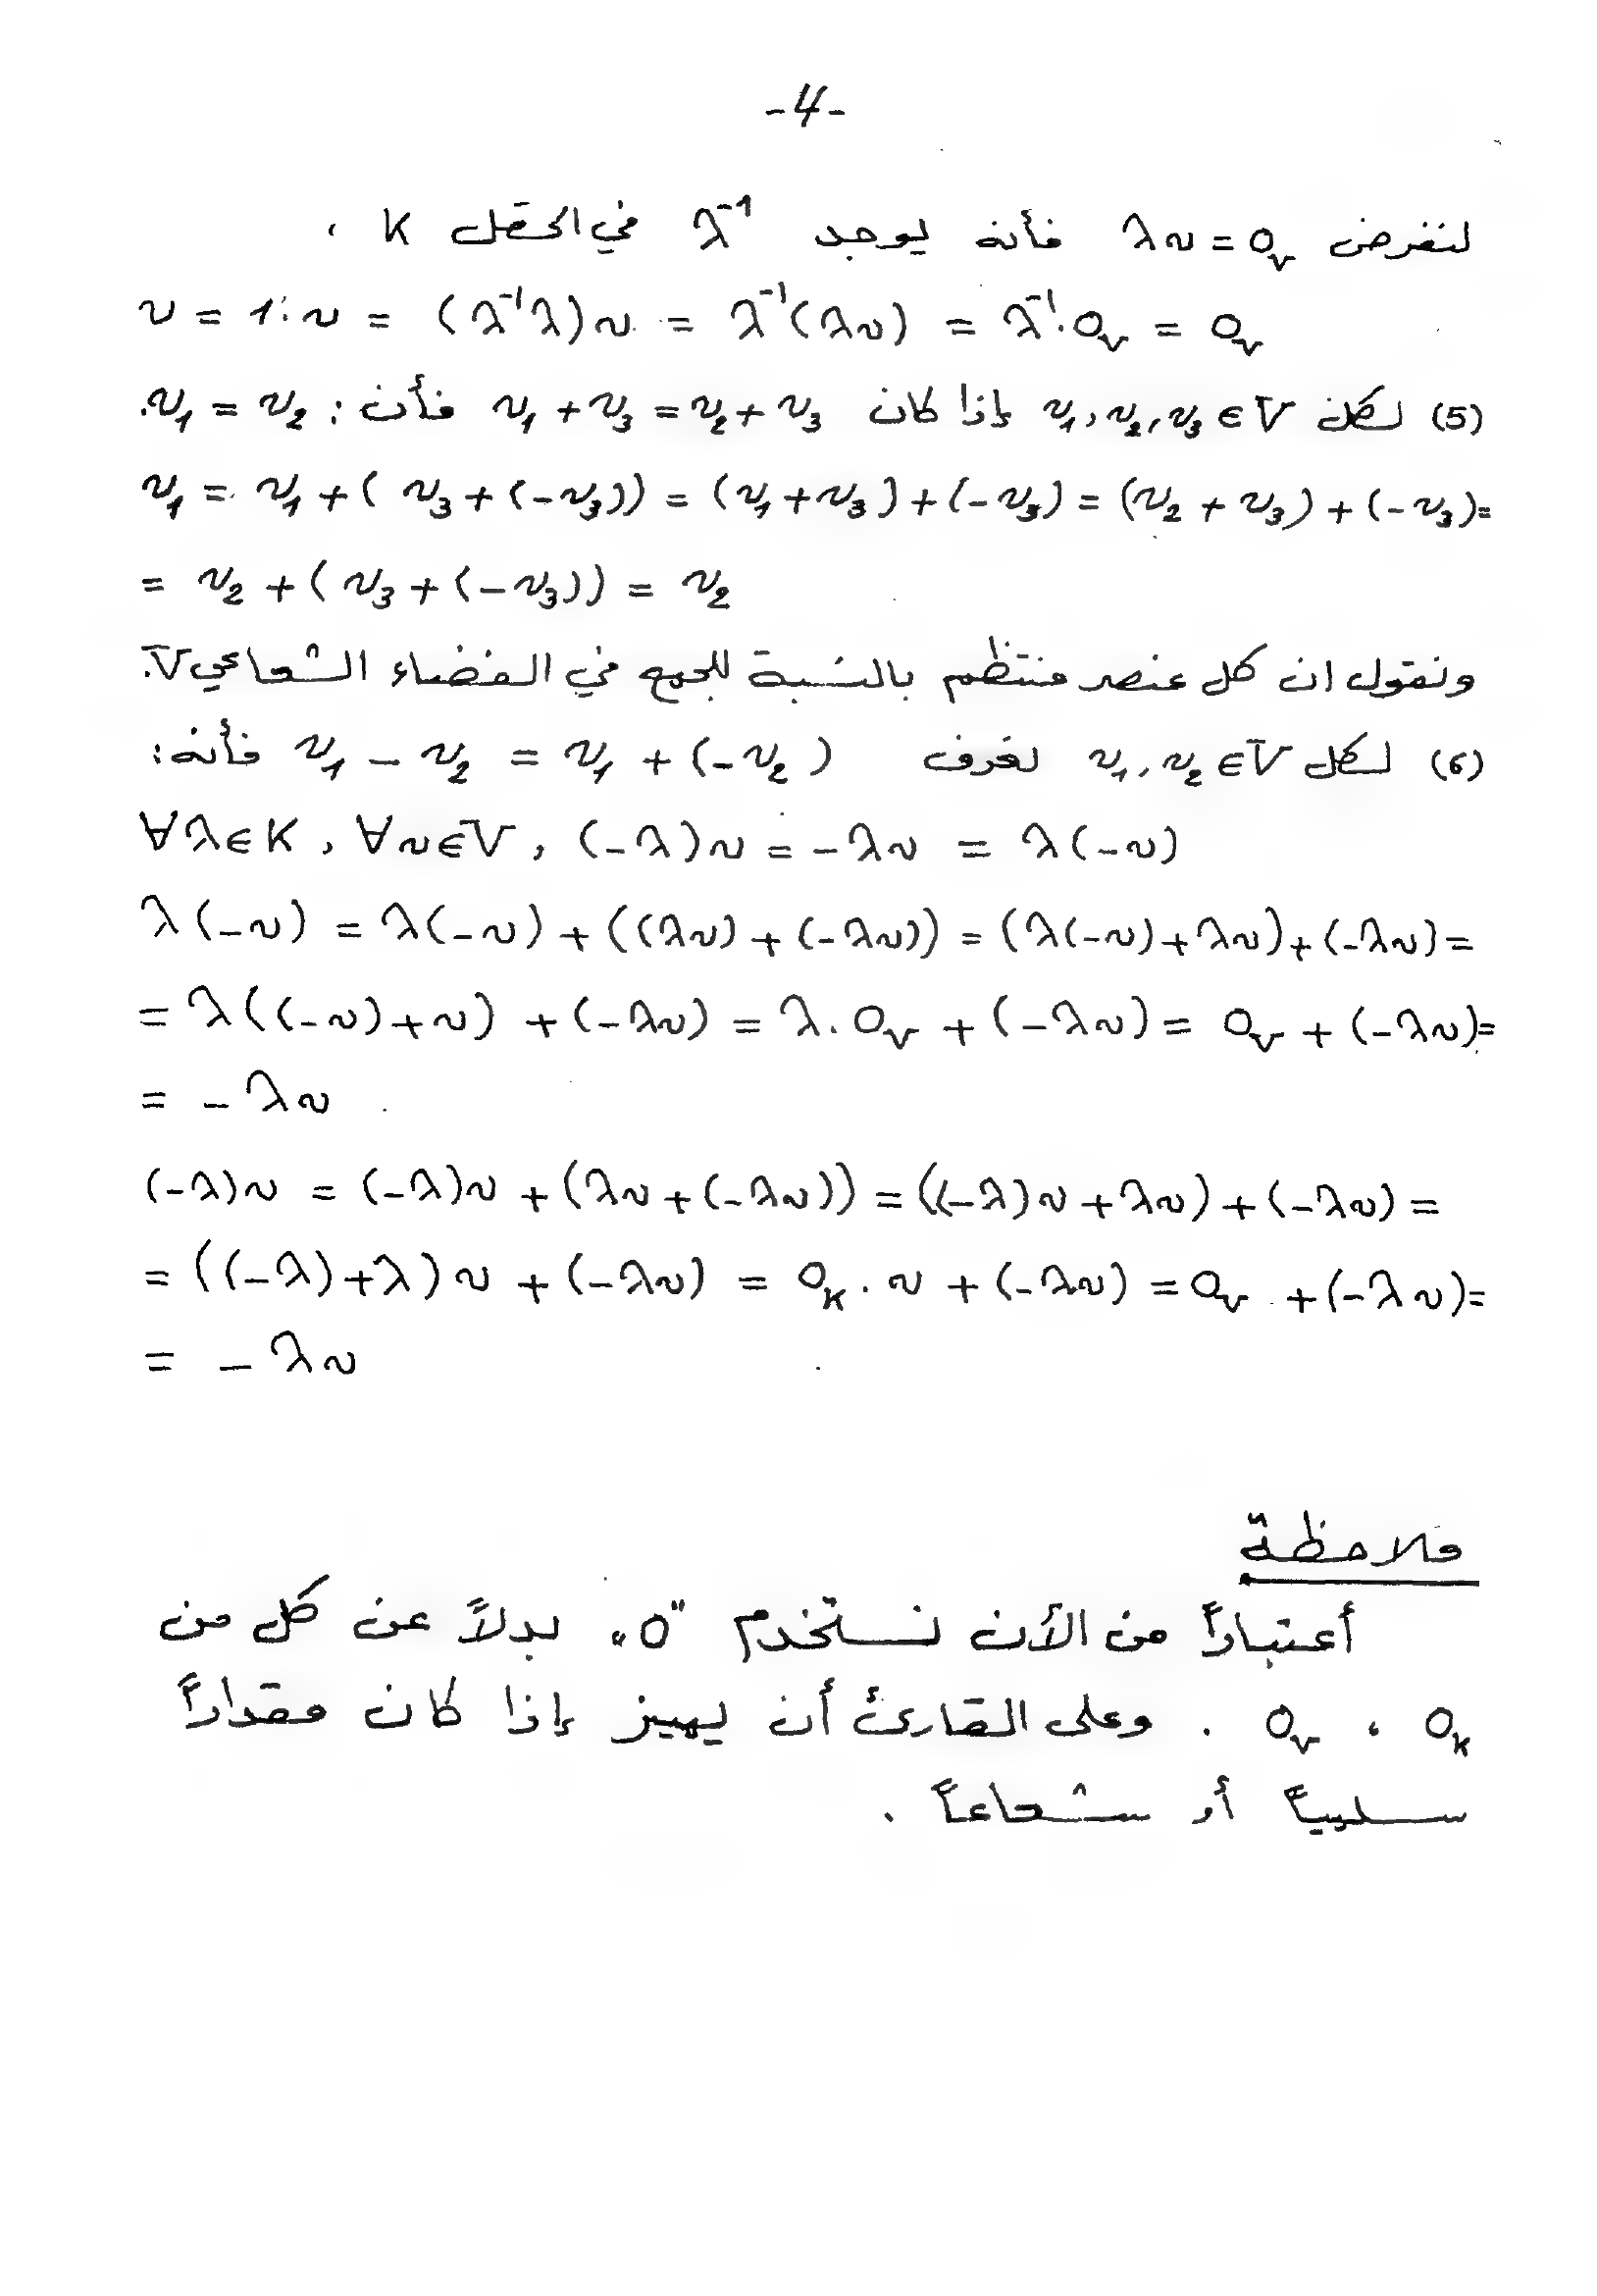 -4-
لنفرض λv = 0_v فأنه يوجد λ⁻¹ في الحقل K ،
v = 1·v = (λ⁻¹λ)v = λ⁻¹(λv) = λ⁻¹·0_v = 0_v
(5) لكل v₁, v₂, v₃ ∈ V إذا كان v₁ + v₃ = v₂ + v₃ فأن : v₁ = v₂.
v₁ = v₁ + (v₃ + (-v₃)) = (v₁ + v₃) + (-v₃) = (v₂ + v₃) + (-v₃) =
= v₂ + (v₃ + (-v₃)) = v₂
ونقول ان كل عنصر منتظم بالنسبة للجمع في الفضاء الشعاعي V.
(6) لكل v₁, v₂ ∈ V نعرف v₁ - v₂ = v₁ + (-v₂) فأنه :
∀λ∈K , ∀v∈V , (-λ)v = -λv = λ(-v)
λ(-v) = λ(-v) + ((λv) + (-λv)) = (λ(-v) + λv) + (-λv) =
= λ((-v) + v) + (-λv) = λ·0_v + (-λv) = 0_v + (-λv) =
= -λv
(-λ)v = (-λ)v + (λv + (-λv)) = ((-λ)v + λv) + (-λv) =
= ((-λ) + λ)v + (-λv) = 0_k·v + (-λv) = 0_v + (-λv) =
= -λv
ملاحظة
أعتباراً من الأن نستخدم "0" بدلاً عن كل من
0_k ، 0_v . وعلى القارئ أن يميز إذا كان مقداراً
سلمياً أو شعاعاً .